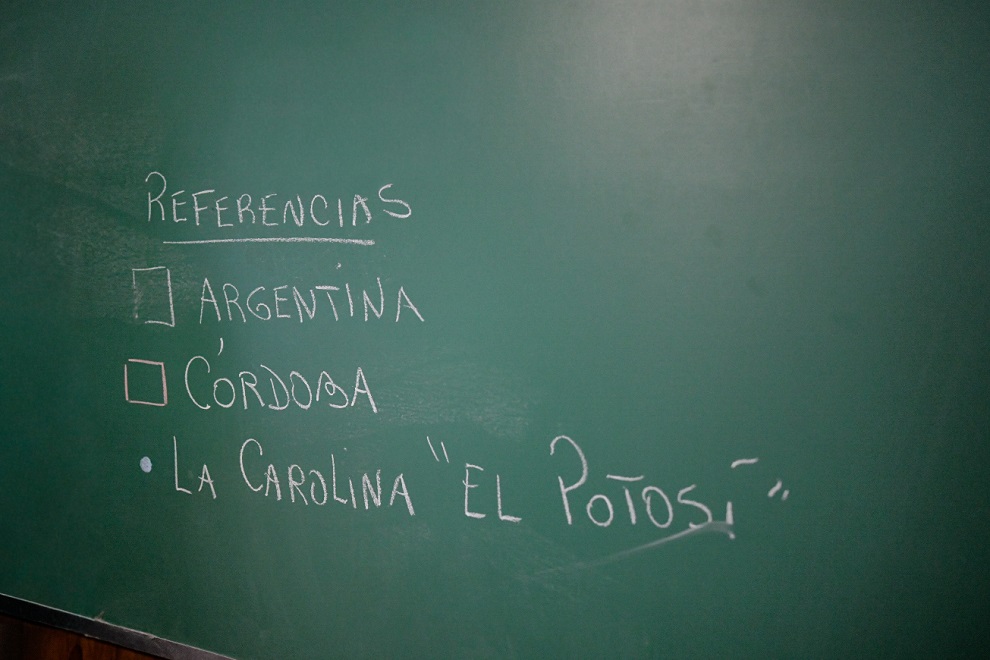 REFERENCIAS
ARGENTINA
CÓRDOBA
• LA CAROLINA "EL POTOSÍ"